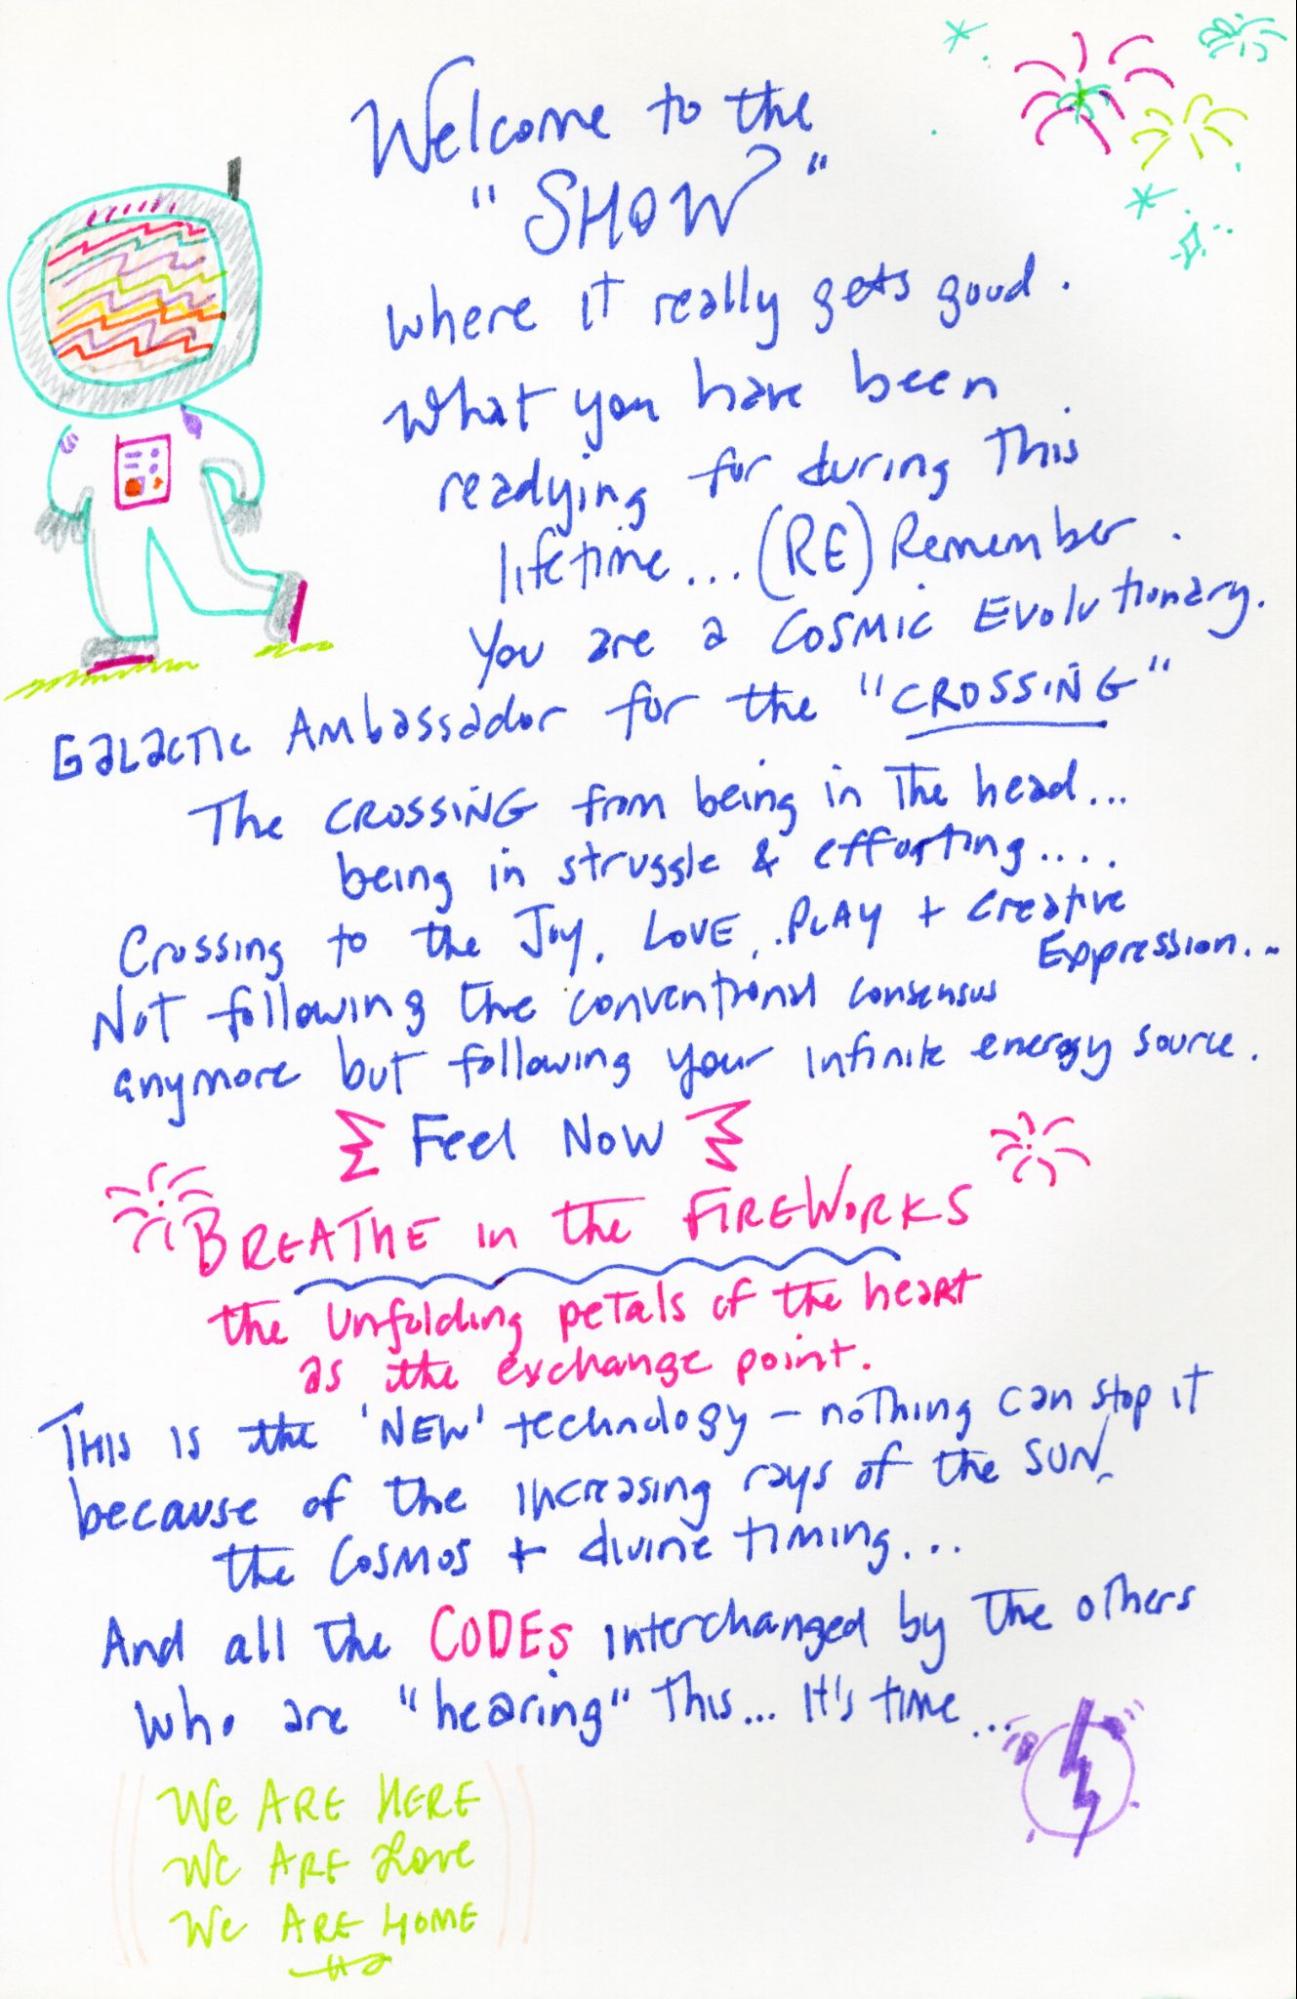 Welcome to the
"SHOW"
where it really gets good.
What you have been
readying for during This
lifetime... (RE) Remember.
You are a COSMIC Evolutionary.
GALACTIC Ambassador for the "CROSSING"
The CROSSING from being in The head...
being in struggle & efforting....
Crossing to the Joy, LOVE, PLAY + Creative
Expression...
Not following the conventional consensus
anymore but following your infinite energy source.
Feel Now
BREATHE in the FIREWORKS
the Unfolding petals of the heart
as the exchange point.
THIS IS the 'NEW' technology - nothing can stop it
because of the increasing rays of the SUN,
the Cosmos + divine timing...
And all the CODES interchanged by The others
who are "hearing" This... It's time...
We ARE HERE
We ARE Love
We ARE HOME